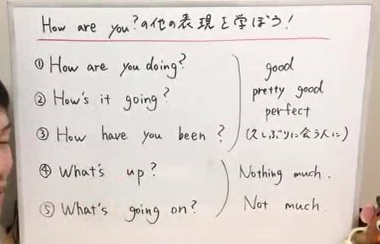 How are you?の他の表現を学ぼう!
① How are you doing?
② How's it going?
③ How have you been?
good
pretty good
perfect
(久しぶりに会う人に)
④ What's up?
⑤ What's going on?
Nothing much.
Not much.